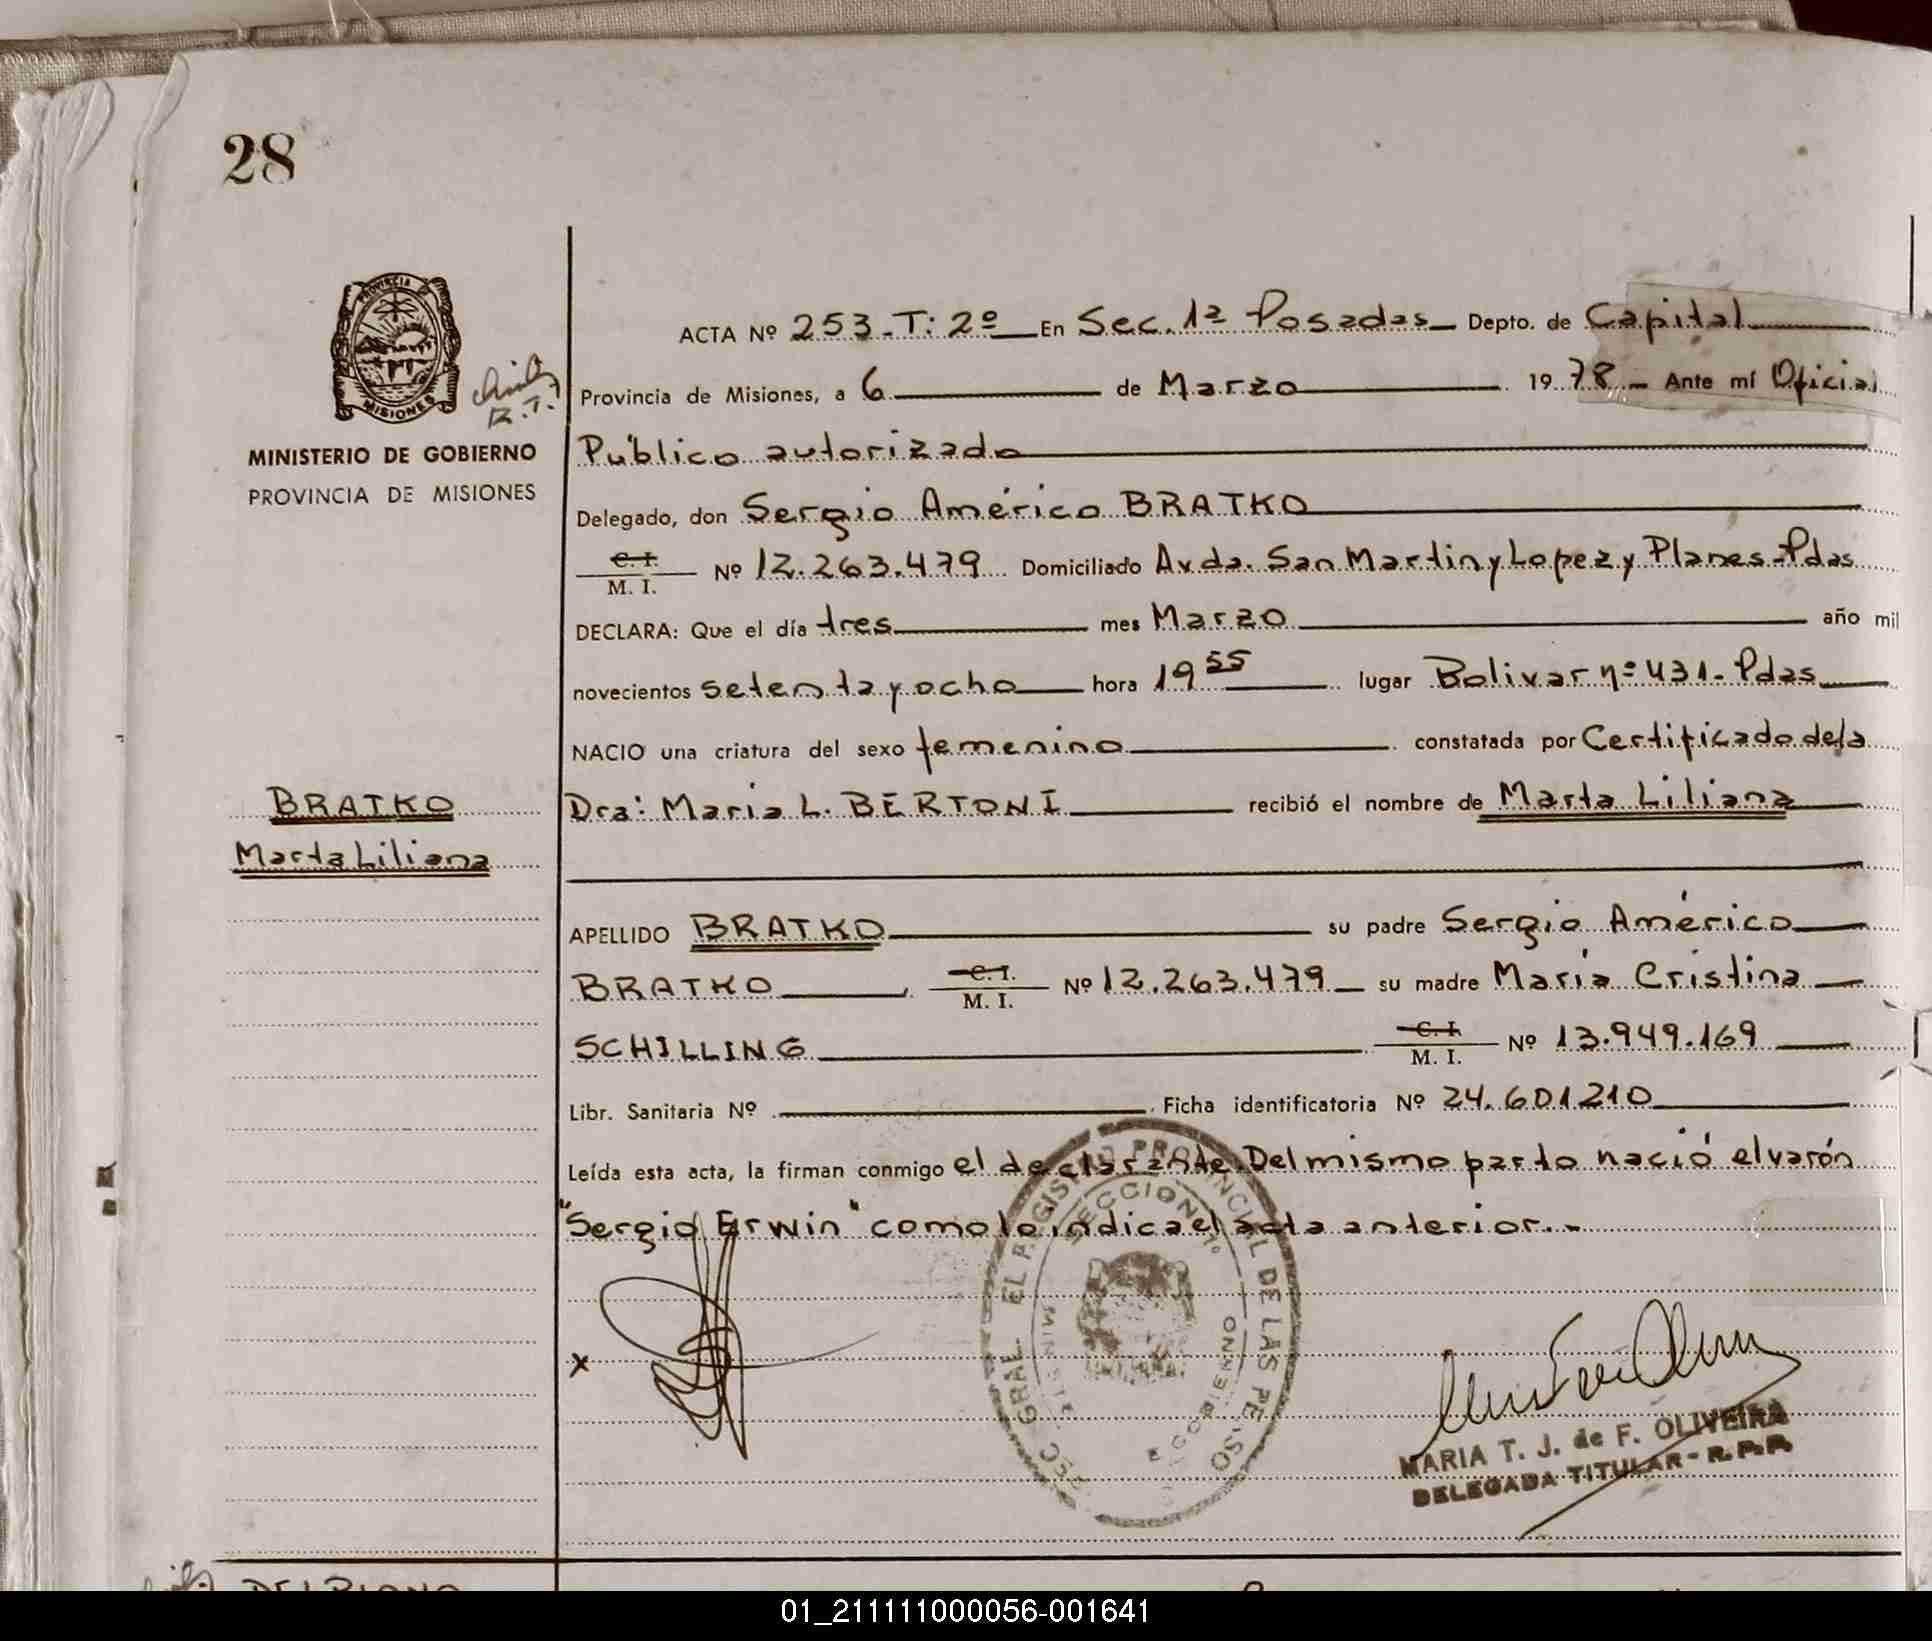 28
PROVINCIA
MISIONES
R.T.
MINISTERIO DE GOBIERNO
PROVINCIA DE MISIONES
ACTA Nº 253-T: 2º En Sec. 1ª Posadas Depto. de Capital
Provincia de Misiones, a 6 de Marzo 1978 - Ante mí Oficial
Público autorizado
Delegado, don Sergio Américo BRATKO
C. I.
M. I. Nº 12.263.479 Domiciliado Avda. San Martin y Lopez y Planes-Pdas
DECLARA: Que el día tres mes Marzo año mil
novecientos setenta y ocho hora 19 55 lugar Bolivar nº 431- Pdas
NACIO una criatura del sexo femenino constatada por Certificado de la
BRATKO
Marta Liliana
Dra: Maria L. BERTONI recibió el nombre de Marta Liliana
APELLIDO BRATKO su padre Sergio Américo
BRATKO, C. I. M. I. Nº 12.263.479 su madre María Cristina
SCHILLING C. I. M. I. Nº 13.949.169
Libr. Sanitaria Nº Ficha identificatoria Nº 24.601210
Leída esta acta, la firman conmigo el declarante. Del mismo parto nació el varón
"Sergio Erwin" como lo indica el acta anterior.-
x
SECCION 1º
MARIA T. J. de F. OLIVEIRA
DELEGADA TITULAR - R.P.P.
01_211111000056-001641